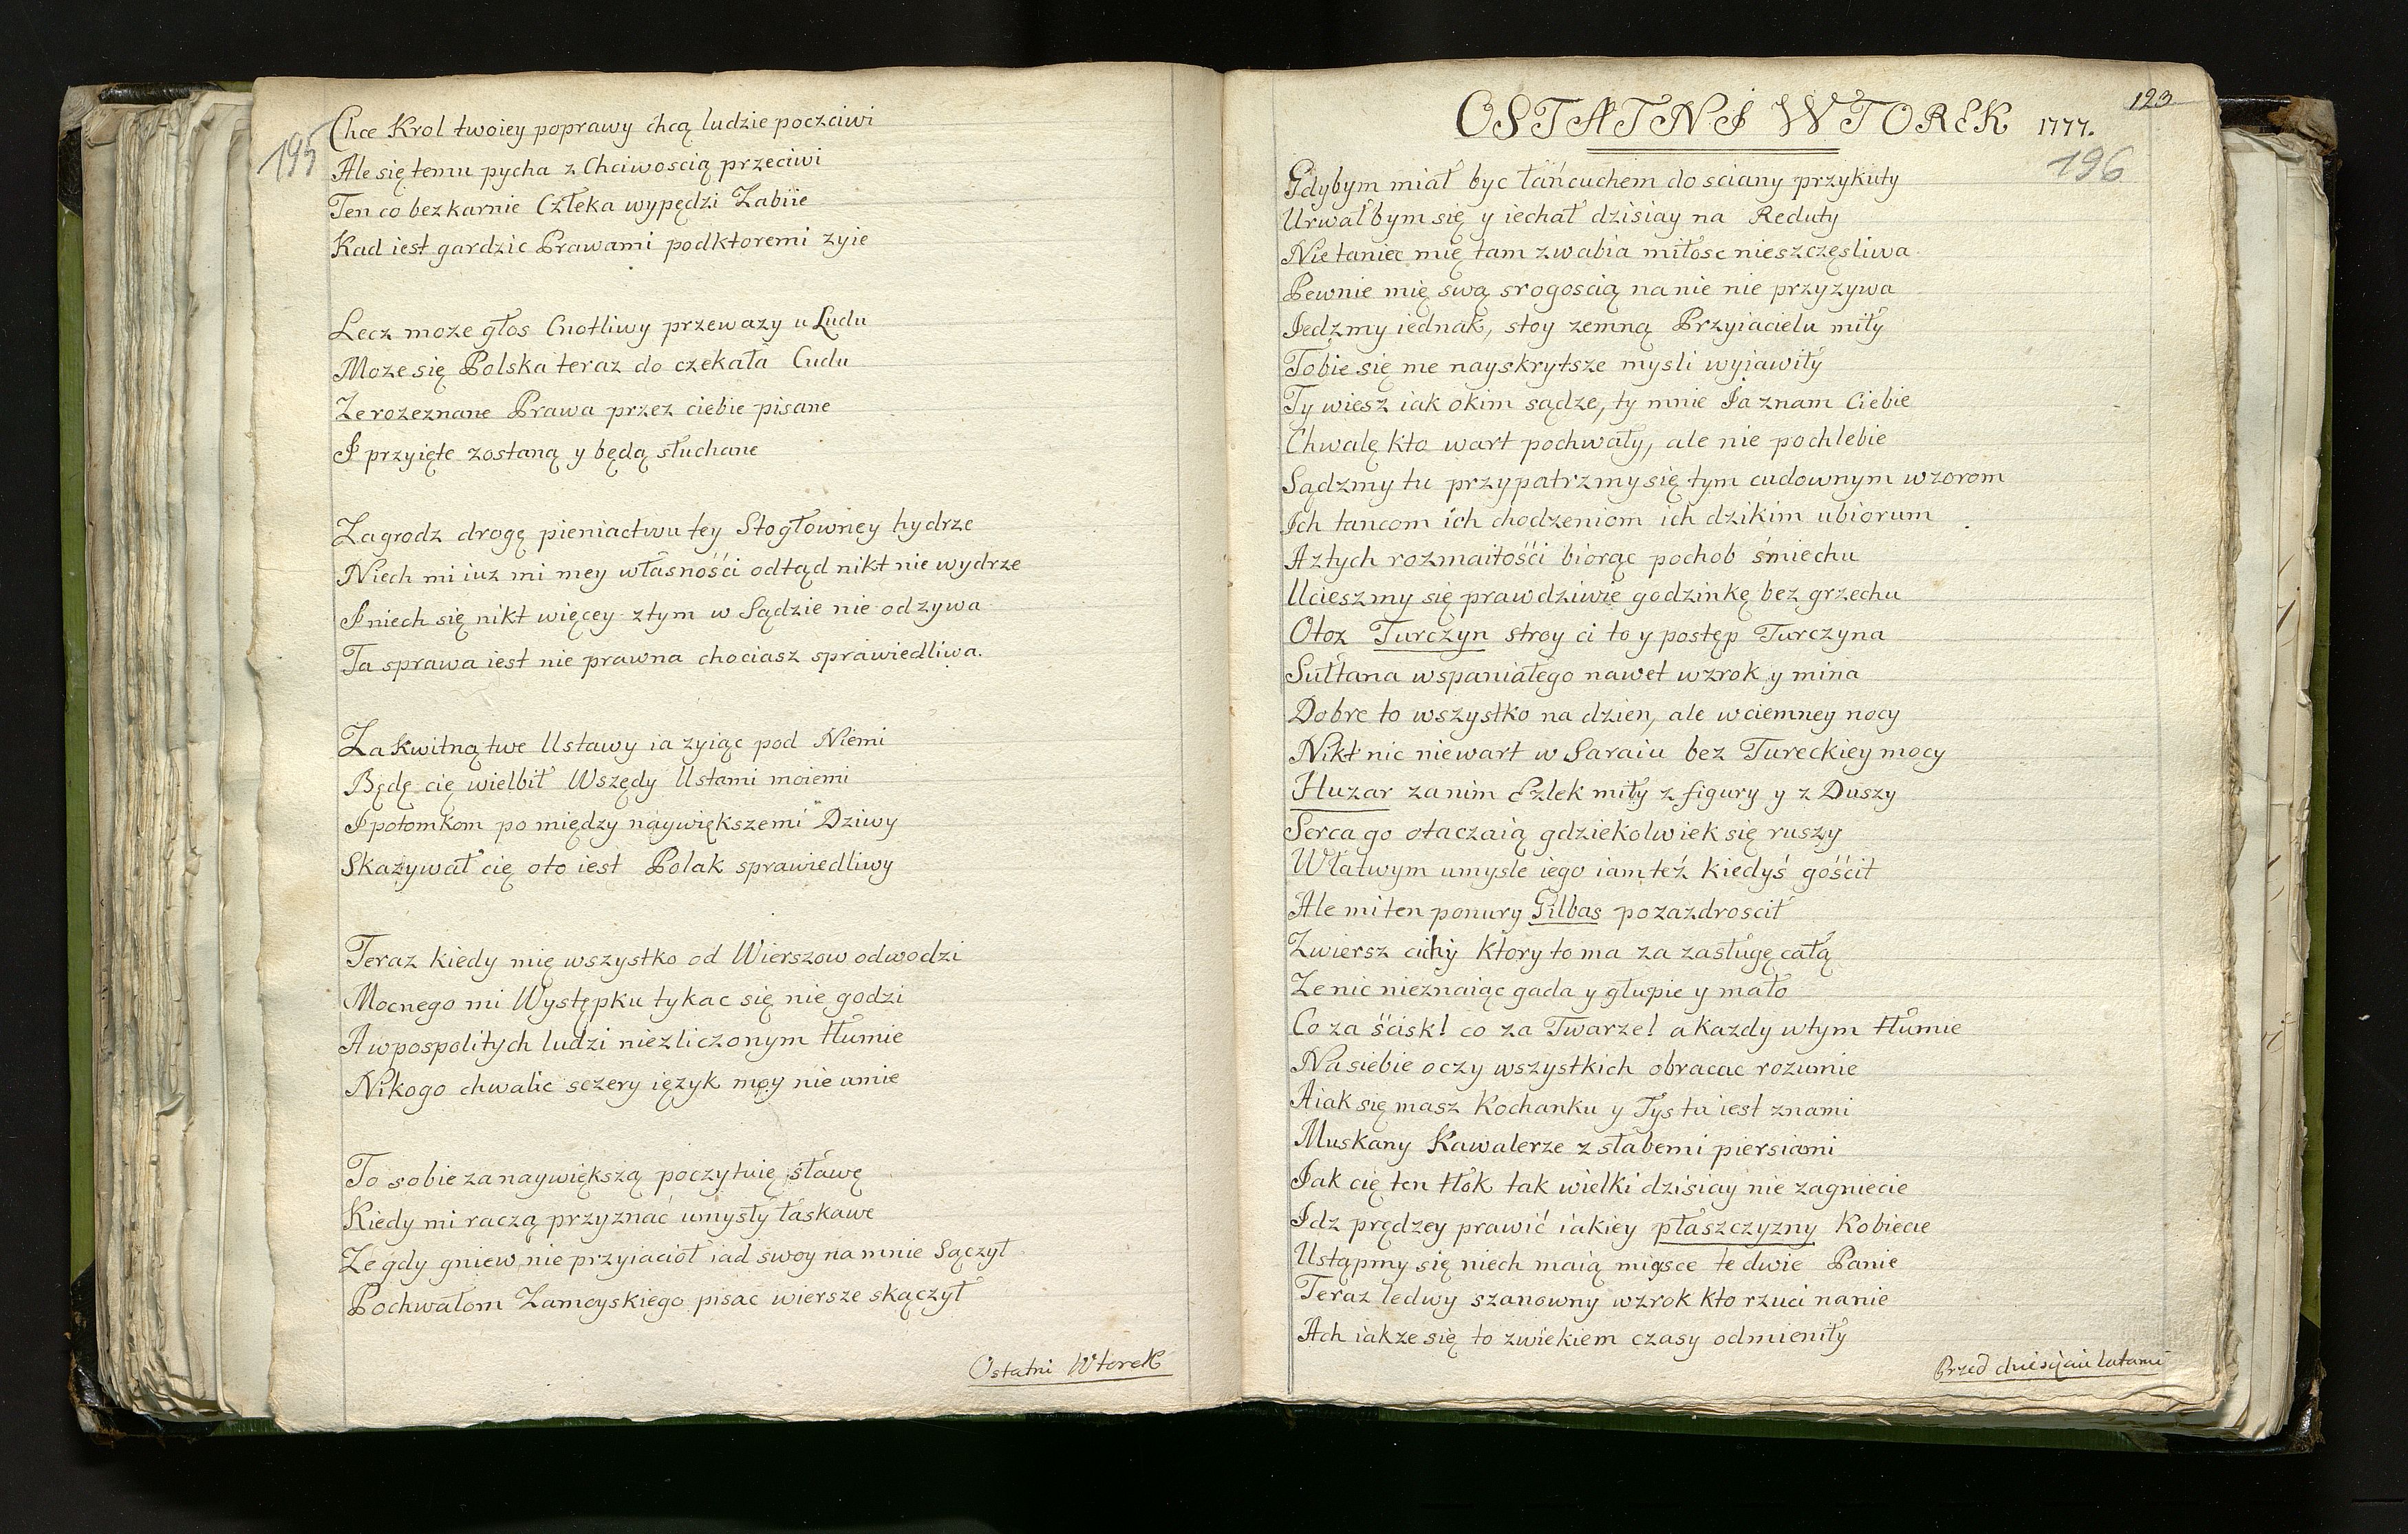 195
Chce Krol twoiey poprawy chcą ludzie poczciwi
Ale się temu pycha z Chciwoscią przeciwi
Ten co bezkarnie Człeka wypędzi Zabiie
Rad iest gardzic Prawami pod ktoremi zyie
Lecz moze głos Cnotliwy przewazy u Ludu
Moze się Polska teraz do czekała Cudu
Ze rozeznane Prawa przez ciebie pisane
I przyięte zostaną y będą słuchane
Zagrodz drogę pieniactwu tey Stogłowney hydrze
Niech mi iuz mi mey własnośći odtąd nikt nie wydrze
I niech się nikt więcey z tym w Sądzie nie odzywa
Ta sprawa iest nie prawna chociasz sprawiedliwa.
Zakwitną twe Ustawy ia zyiąc pod Niemi
Będę cię wielbił Wszędy Ustami moiemi
I potomkom po między naywiększemi Dziwy
Skazywał cię oto iest Polak sprawiedliwy
Teraz kiedy mię wszystko od Wierszow odwodzi
Mocnego mi Występku tykac się nie godzi
A w pospolitych ludzi niezliczonym tłumie
Nikogo chwalic sczery ięzyk moy nie umie
To sobie za naywiększą poczytuię sławę
Kiedy mi raczą przyznać umysły łaskawe
Ze gdy gniew nie przyiacioł iad swoy na mnie Sączył
Pochwałom Zamoyskiego pisac wiersze skączył
Ostatni Wtorek
123
OSTATNI WTOREK 1777.
196
Gdybym miał byc łańcuchem do sciany przykuty
Urwałbym się y iechał dzisiay na Reduty
Nie taniec mię tam zwabia miłosc nieszczęsliwa
Pewnie mię swą srogoscią na nie nie przyzywa
Iedzmy iednak, stoy zemną Przyiacielu miły
Tobie się me nayskrytsze mysli wyiawiły
Ty wiesz iak okim sądze, ty mnie Ia znam Ciebie
Chwalę kto wart pochwały, ale nie pochlebie
Sądzmy tu przypatrzmy się tym cudownym wzorom
Ich tancom ich chodzeniom ich dzikim ubiorum
A z tych rozmaitośći biorąc pochob śmiechu
Ucieszmy się prawdziwie godzinkę bez grzechu
Otoz Turczyn stroy ci to y postęp Turczyna
Sułtana wspaniałego nawet wzrok y mina
Dobre to wszystko na dzien, ale w ciemney nocy
Nikt nic niewart w Saraiu bez Tureckiey mocy
Huzar za nim Człek miły z figury y z Duszy
Serca go otaczaią gdziekolwiek się ruszy
W łatwym umysle iego iam też kiedyś gościł
Ale mi ten ponury Gilbas pozazdroscił
Zwiersz cichy ktory to ma za zasługę całą
Ze nic nieznaiąc gada y głupie y mało
Co za ścisk! co za Twarze! a kazdy w tym tłumie
Na siebie oczy wszystkich obracac rozumie
A iak się masz Kochanku y Tys tu iest znami
Muskany Kawalerze z słabemi piersiami
Iak cię ten tłok tak wielki dzisiay nie zagniecie
Idz prędzey prawić iakiey płaszczyzny Kobiecie
Ustąpmy się niech maią mieysce te dwie Panie
Teraz ledwy szanowny wzrok kto rzuci na nie
Ach iakze się to zwiekiem czasy odmieniły
Przed dziesiąciu latami